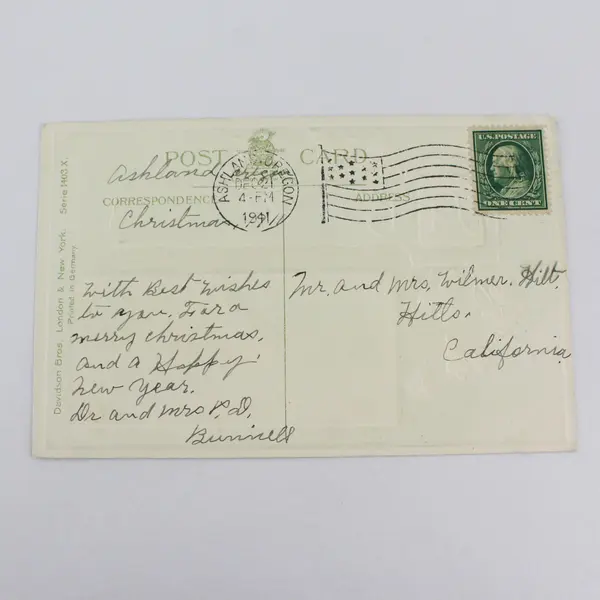 POST CARD
Ashland
CORRESPONDENCE
ADDRESS
Christmas
ASHLAND OREGON
DEC 21
4-PM
1911
U.S. POSTAGE
ONE CENT
With Best Wishes
to you. For a
merry christmas.
and a Happy
New Year.
Dr and Mrs P. D.
Bunnell
Mr. and Mrs. Wilmer. Hilt.
Hilts.
California
Davidson Bros. London & New York. Serie 1403 X.
Printed in Germany